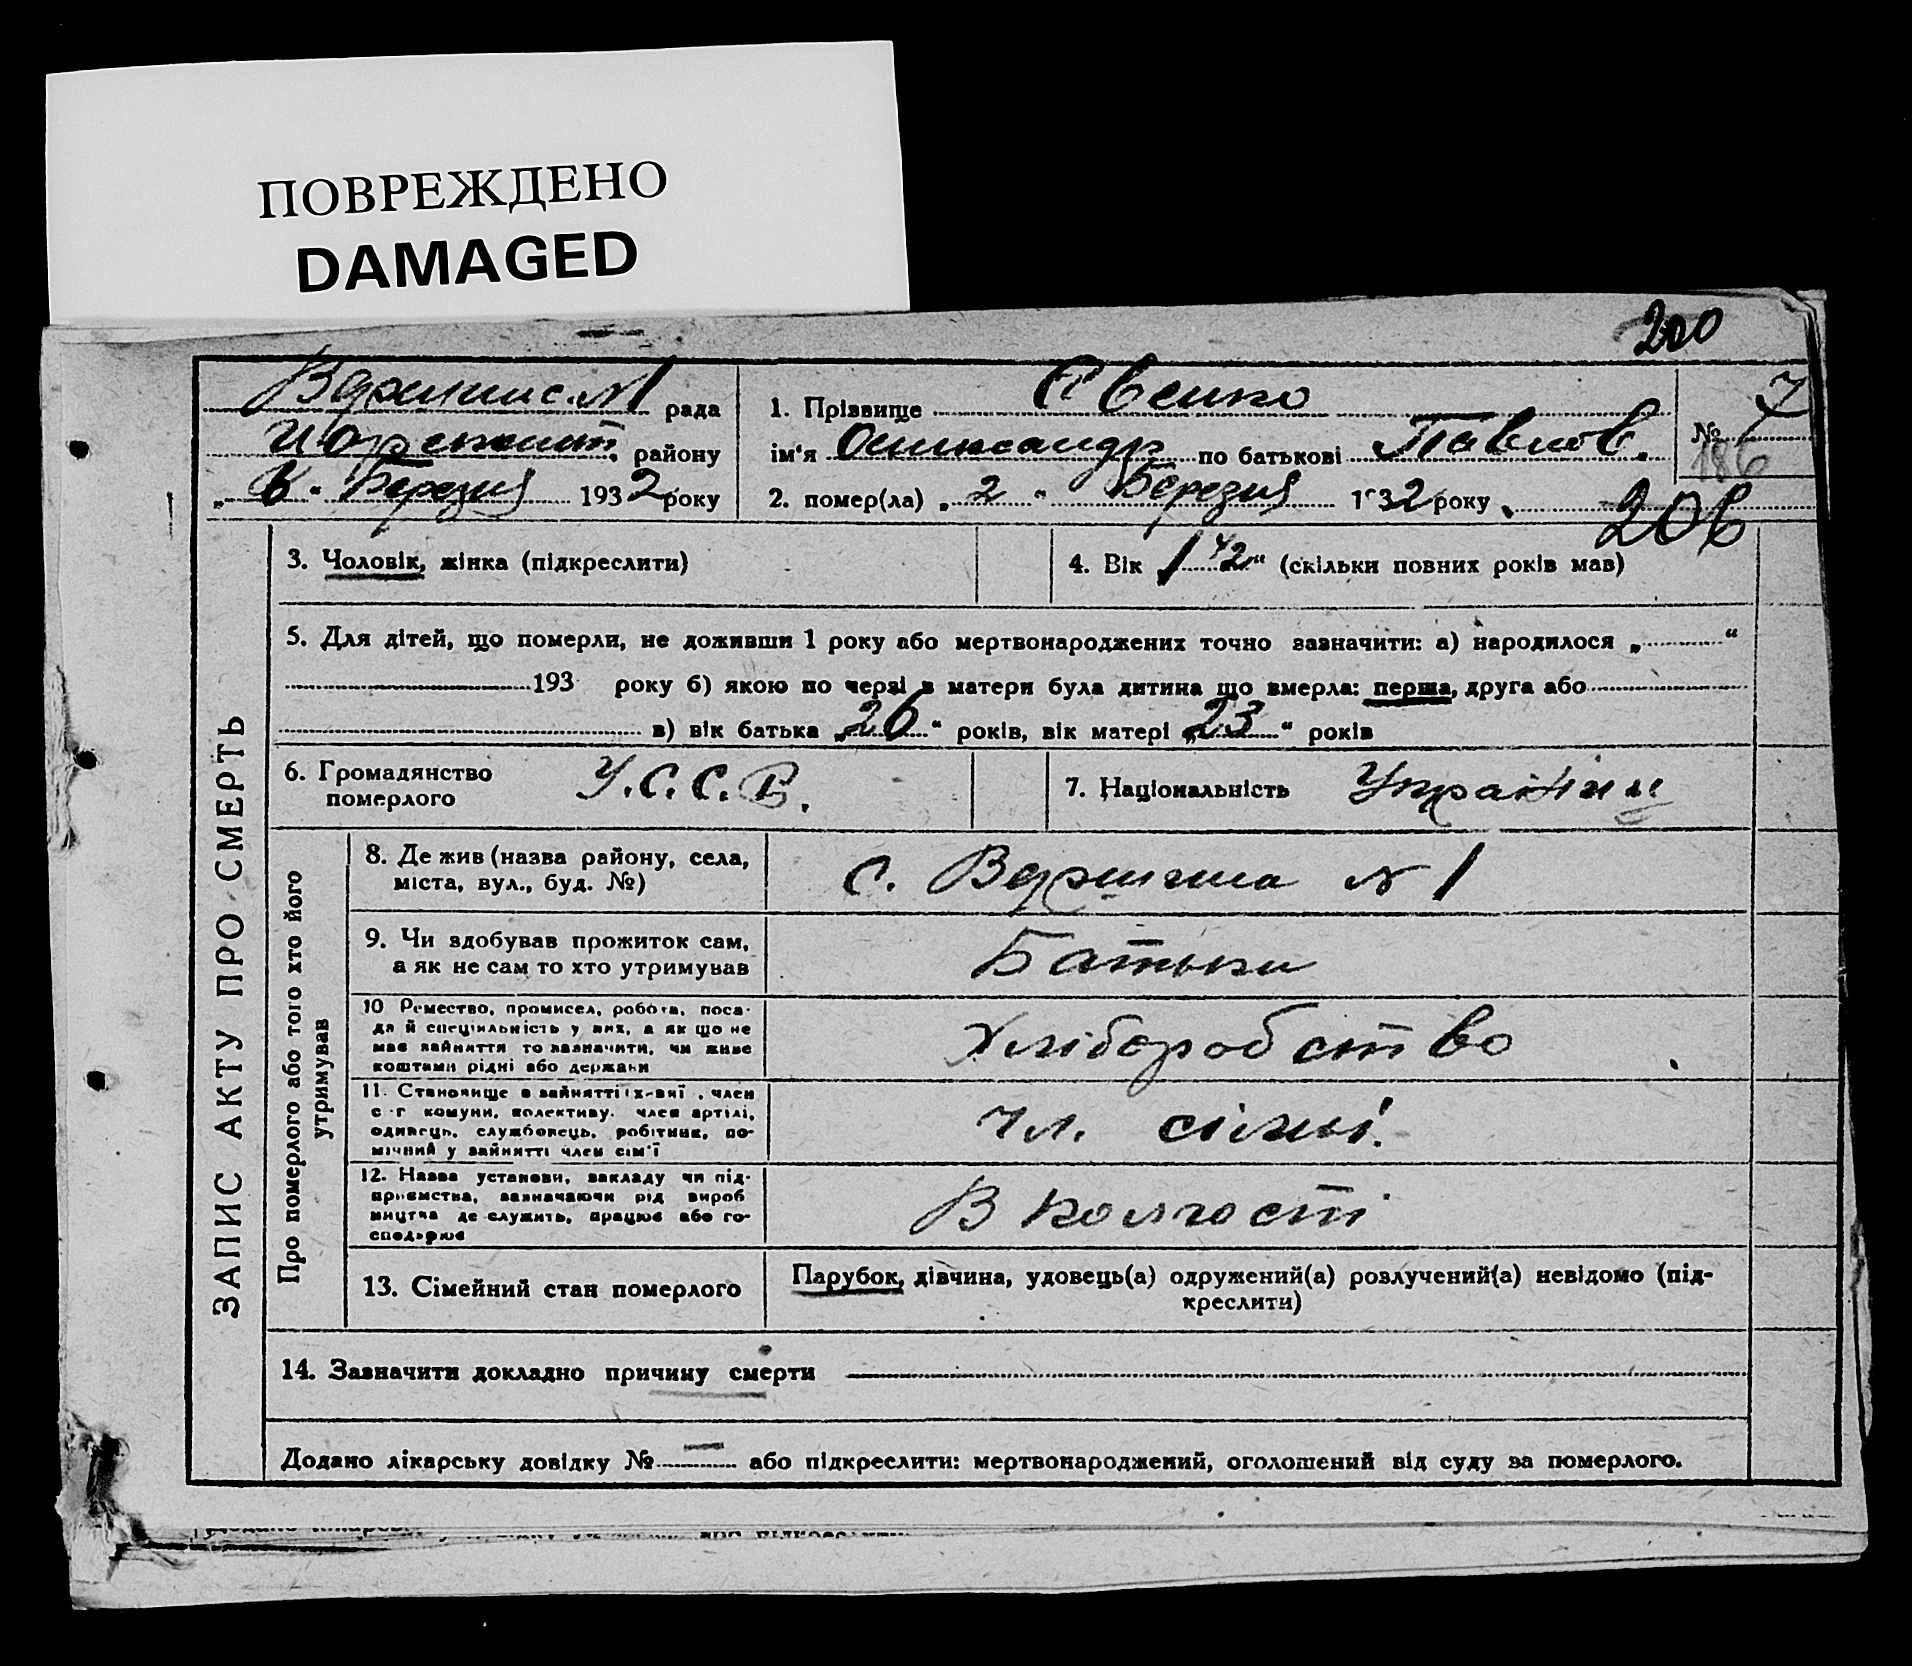 ПОВРЕЖДЕНО
DAMAGED
200
рада
району
„6“ Березня 1932 року
1. Прізвище Явенко
ім'я Олександр по батькові Павлов.
2. помер(ла) „2“ Березня 1932 року
№ 7
186
206
ЗАПИС АКТУ ПРО СМЕРТЬ
3. Чоловік, жінка (підкреслити)
4. Вік 1 1/2 “ (скільки повних років мав)
5. Для дітей, що померли, не доживши 1 року або мертвонароджених точно зазначити: а) народилося „ “
193 року б) якою по черзі в матери була дитина що вмерла: перша, друга або
в) вік батька „26“ років, вік матері „23“ років
6. Громадянство
померлого
У.С.С.Р.
7. Національність
Про померлого або того хто його
утримував
8. Де жив (назва району, села,
міста, вул., буд. №)
с. № 1
9. Чи здобував прожиток сам,
а як не сам то хто утримував
Батьки
10 Ремество, промисел, робота, поса-
да й спеціяльність у них, а як що не
має зайняття то зазначити, чи живе
коштами рідні або держави
Хліборобство
11. Становище в зайнятті член
с-г комуни, колективу. член артілі,
одинець, службовець, робітник, по-
мічний у зайнятті член сім'ї
чл. сімьі.
12. Назва установи, закладу чи під-
приємства, зазначаючи рід вироб
ництва де служить, працює або го-
сподарює
В колгості
13. Сімейний стан померлого
Парубок, дівчина, удовець(а) одружений(а) розлучений(а) невідомо (під-
креслити)
14. Зазначити докладно причину смерти
Додано лікарську довідку № — або підкреслити: мертвонароджений, оголошений від суду за померлого.